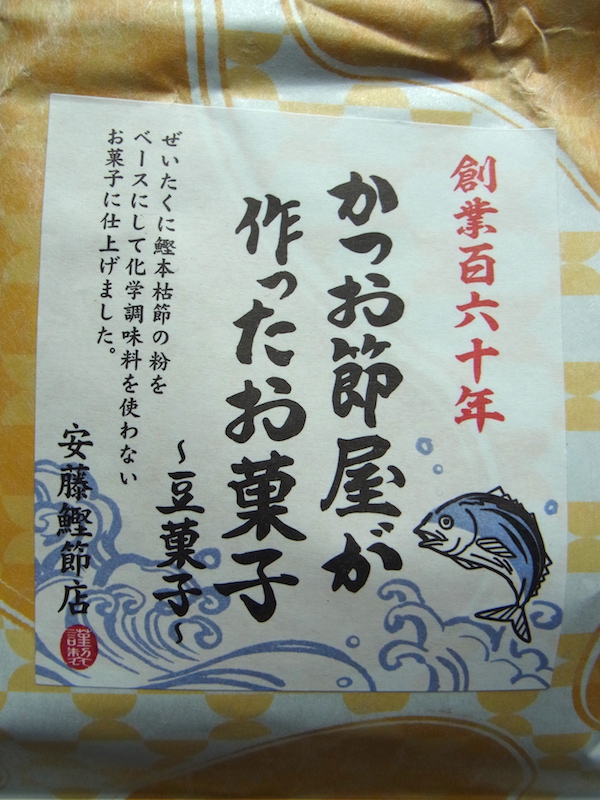 創業百六十年
かつお節屋が
作ったお菓子
～豆菓子～
ぜいたくに鰹本枯節の粉を
ベースにして化学調味料を使わない
お菓子に仕上げました。
安藤鰹節店
謹製